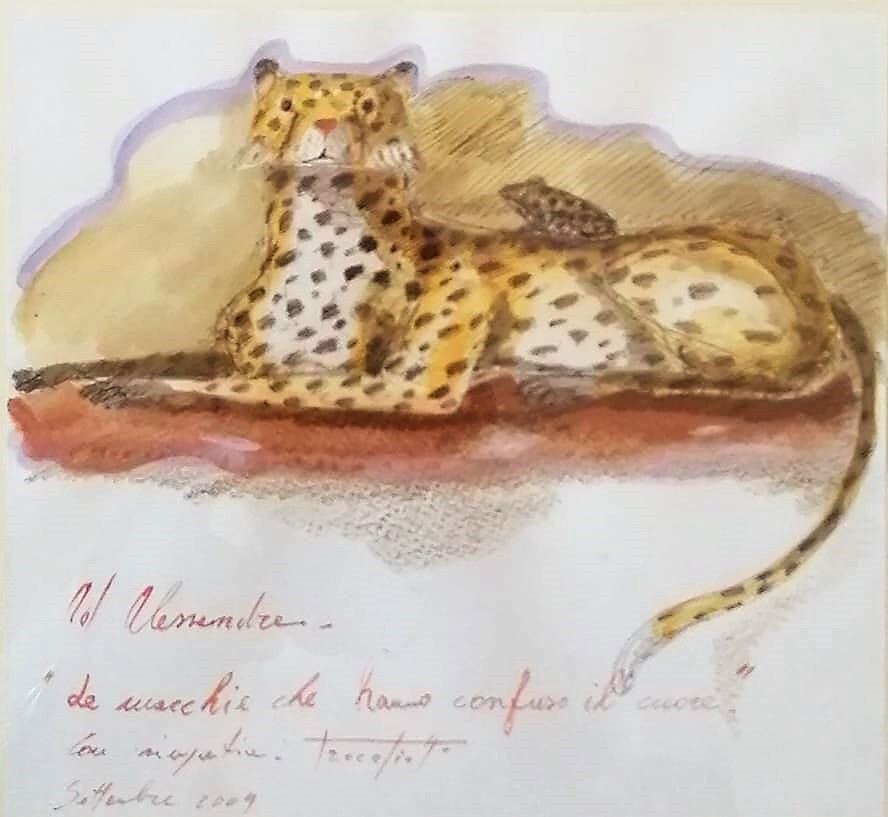 Ad Alessandra.
"Le macchie che hanno confuso il cuore."
Con simpatia.
Settembre 2009